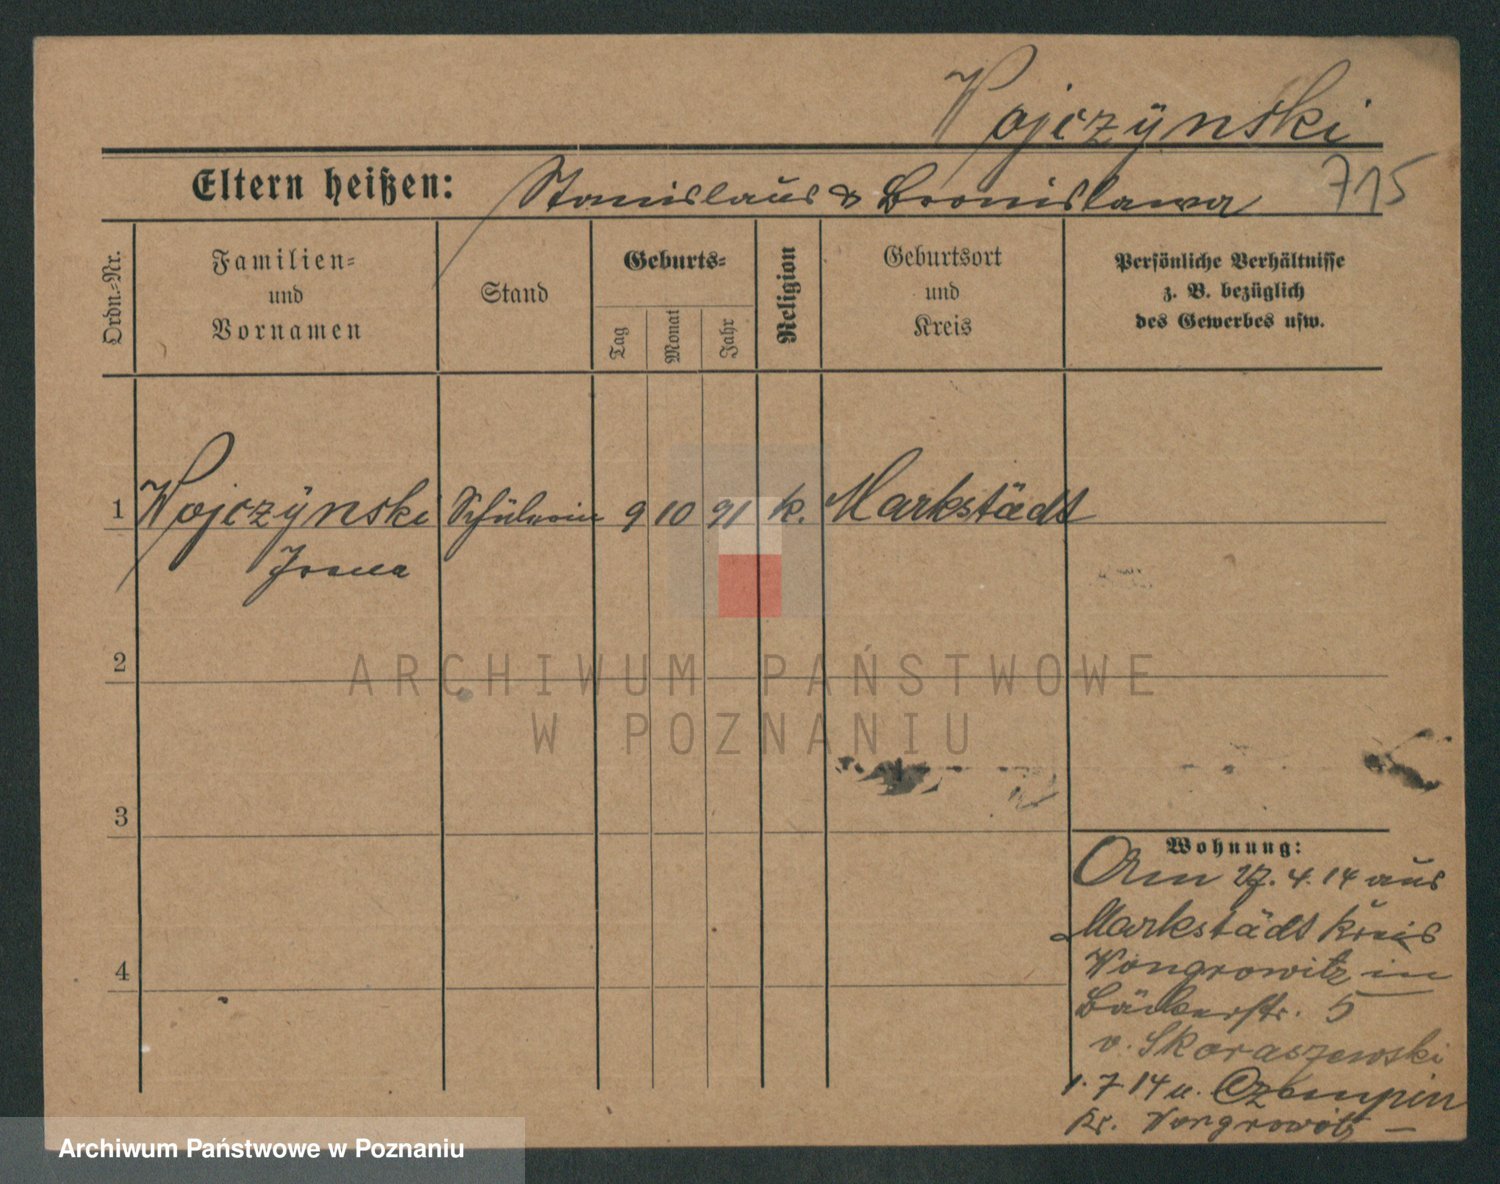 Wojczÿnski
Eltern heißen: Stanislaus & Bronislawa 715
Ordn.-Nr.
Familien-
und
Vornamen
Stand
Geburts-
Tag
Monat
Jahr
Religion
Geburtsort
und
Kreis
Persönliche Verhältnisse
z. B. bezüglich
des Gewerbes usw.
1 Wojczÿnski Schülerin 9 10 91 k. Markstädt
2
3
4
ARCHIWUM PAŃSTWOWE
W POZNANIU
Wohnung:
Am 27. 4. 14 aus
Markstädt Kreis
Wongrowitz in
Bäckerstr. 5
v. Skoraszewski
1. 7. 14 n. Czempin
Kr. Wongrowitz
Archiwum Państwowe w Poznaniu